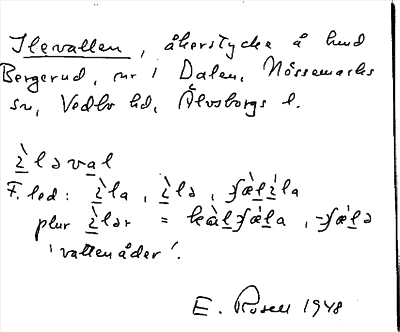 Ilevallen, åkerstycke å lund
Bergerud, nr 1 Dalen, Nössemarks
sn, Vedbo hd, Älvsborgs l.
ìləval
F. led: ìla, ìlə,
plur ìlər =
'vattenåder'.
E. Rosell 1948